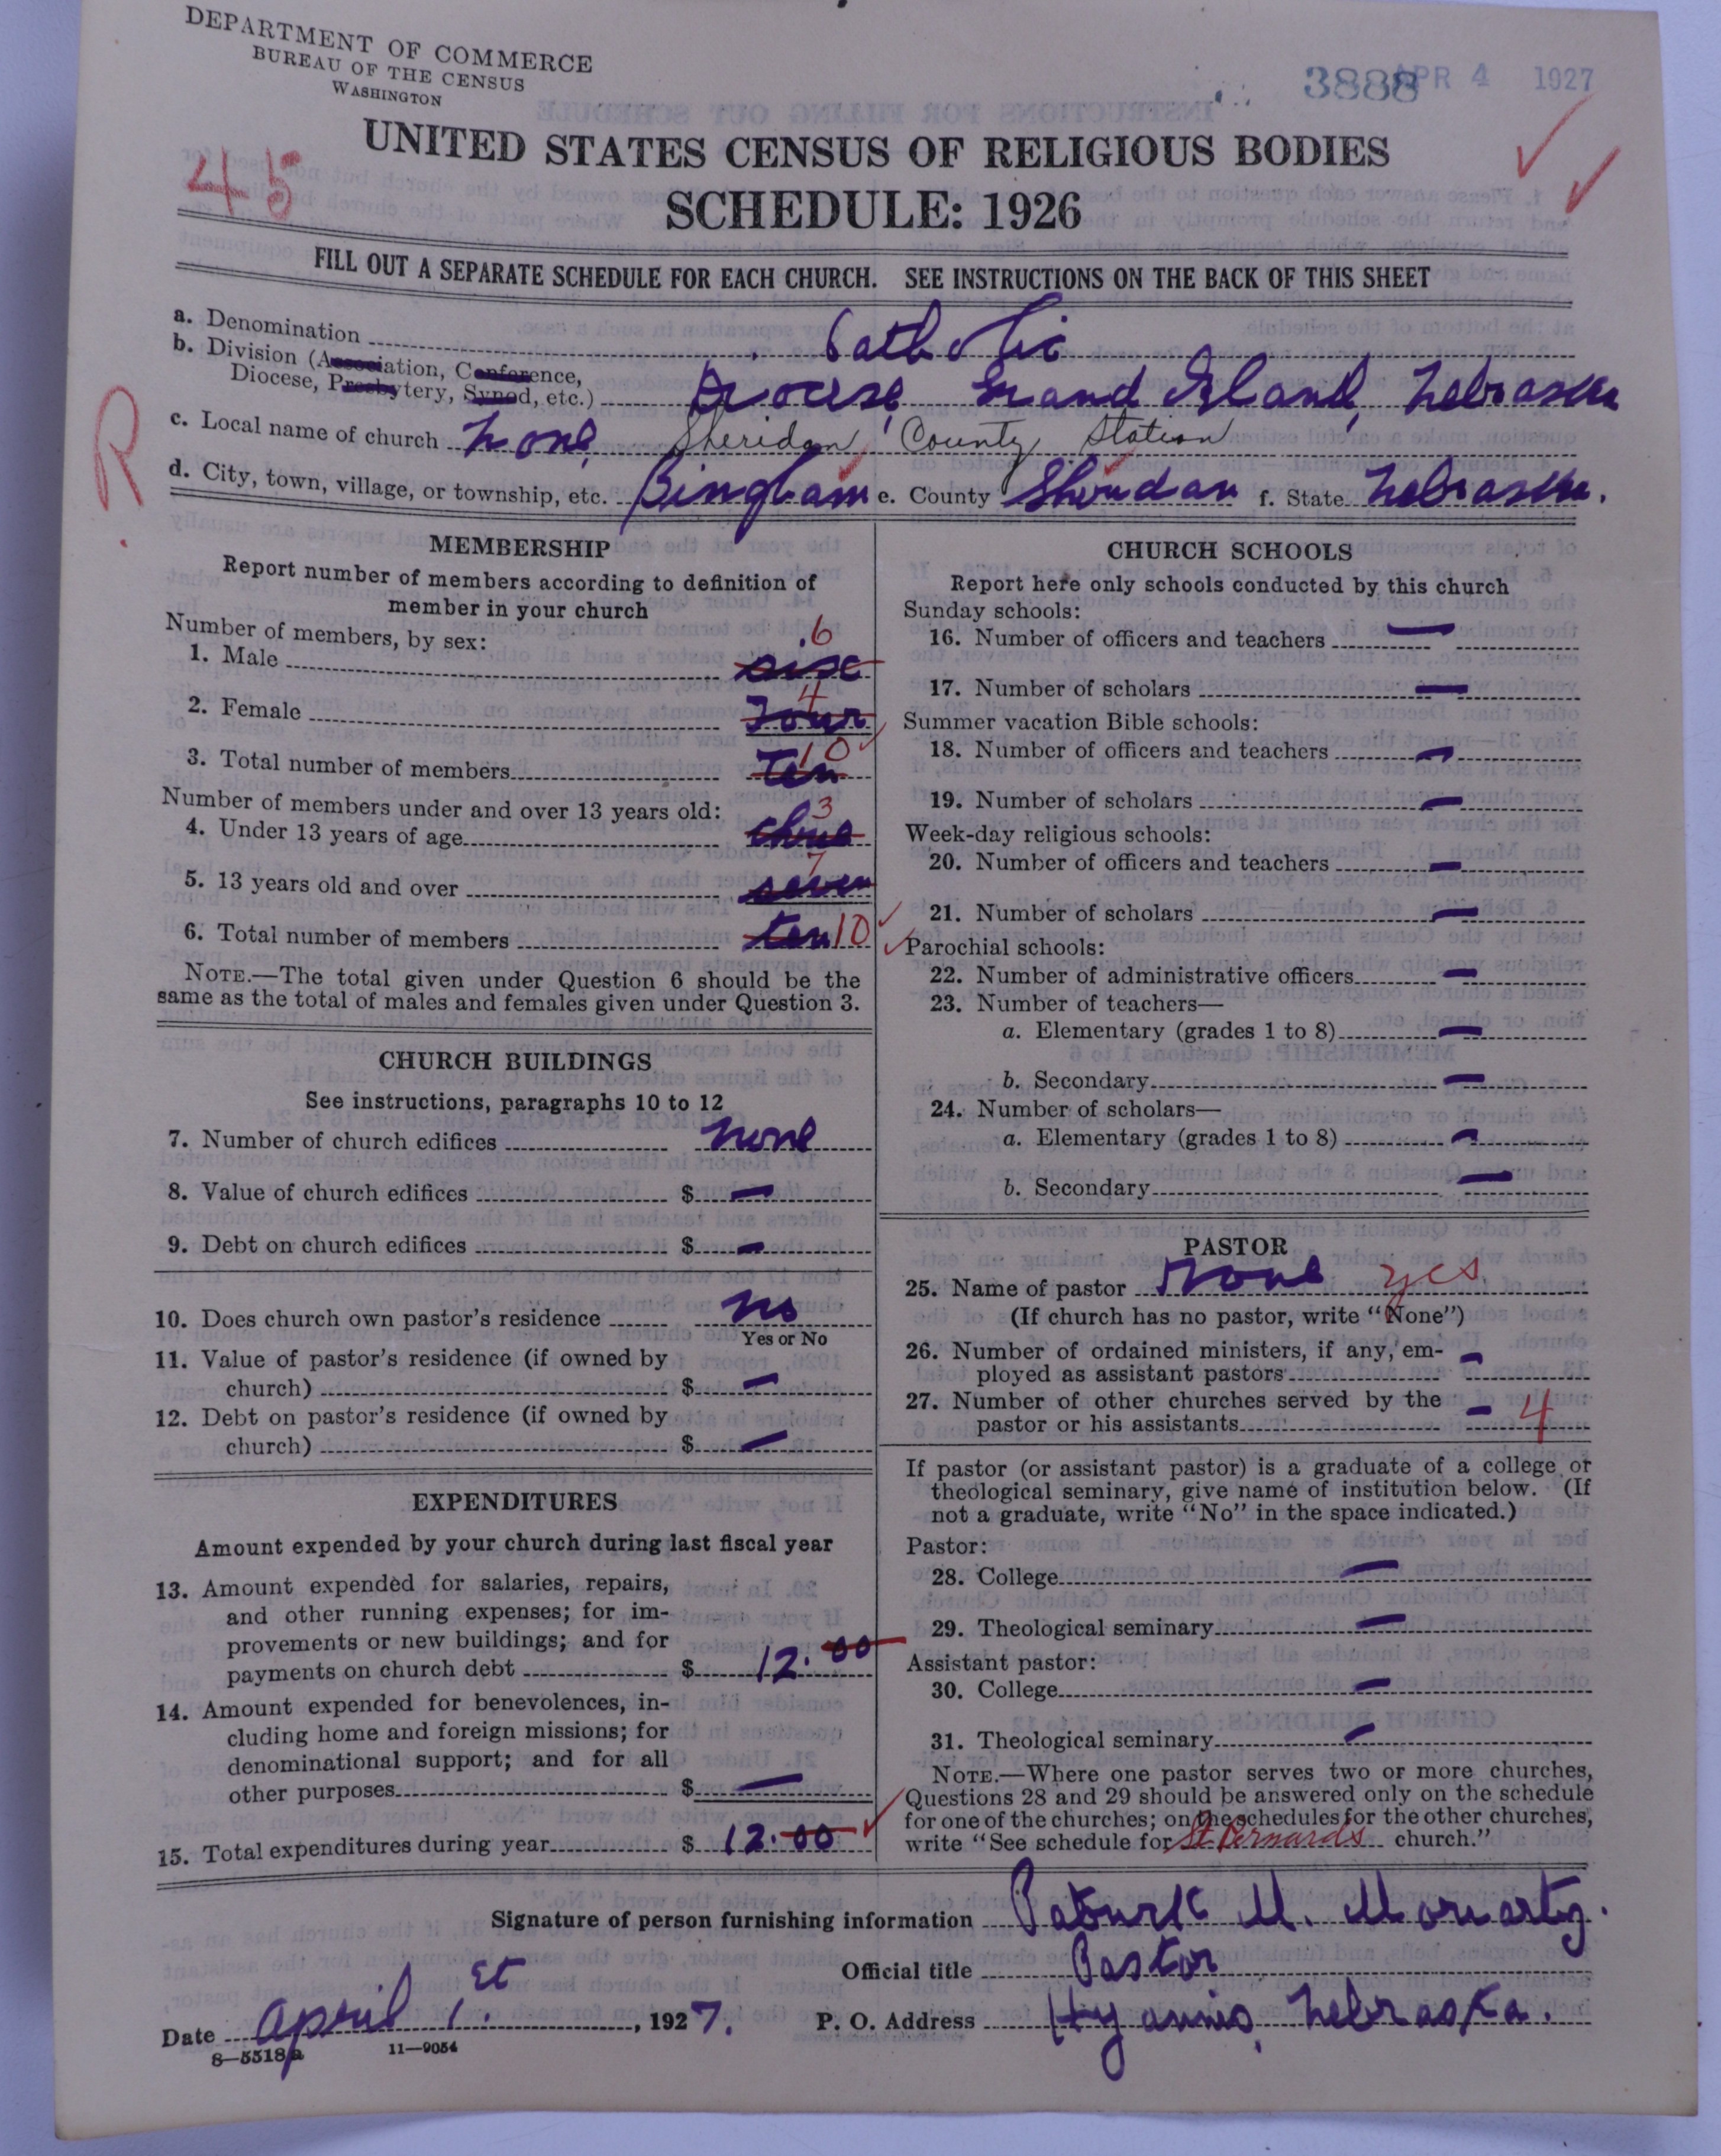 DEPARTMENT OF COMMERCE
BUREAU OF THE CENSUS
WASHINGTON
3888 APR 4 1927
UNITED STATES CENSUS OF RELIGIOUS BODIES
45
SCHEDULE: 1926
FILL OUT A SEPARATE SCHEDULE FOR EACH CHURCH. SEE INSTRUCTIONS ON THE BACK OF THIS SHEET
a. Denomination Catholic
b. Division (Association, Conference,
Diocese, Presbytery, Synod, etc.) Diocese, Grand Island, Nebraska
R
c. Local name of church None, Sheridan County Station
d. City, town, village, or township, etc. Bingham e. County Sheridan f. State Nebraska.
MEMBERSHIP
Report number of members according to definition of
member in your church
Number of members, by sex:
1. Male six 6
2. Female Four 4
3. Total number of members Ten 10
Number of members under and over 13 years old:
4. Under 13 years of age three 3
5. 13 years old and over seven 7
6. Total number of members ten 10
NOTE.—The total given under Question 6 should be the
same as the total of males and females given under Question 3.
CHURCH BUILDINGS
See instructions, paragraphs 10 to 12
7. Number of church edifices none
8. Value of church edifices $ —
9. Debt on church edifices $ —
10. Does church own pastor's residence No
Yes or No
11. Value of pastor's residence (if owned by
church) $ —
12. Debt on pastor's residence (if owned by
church) $ —
EXPENDITURES
Amount expended by your church during last fiscal year
13. Amount expended for salaries, repairs,
and other running expenses; for im-
provements or new buildings; and for
payments on church debt $ 12.00
14. Amount expended for benevolences, in-
cluding home and foreign missions; for
denominational support; and for all
other purposes $ —
15. Total expenditures during year $ 12.00
CHURCH SCHOOLS
Report here only schools conducted by this church
Sunday schools:
16. Number of officers and teachers —
17. Number of scholars —
Summer vacation Bible schools:
18. Number of officers and teachers —
19. Number of scholars —
Week-day religious schools:
20. Number of officers and teachers —
21. Number of scholars —
Parochial schools:
22. Number of administrative officers —
23. Number of teachers—
a. Elementary (grades 1 to 8) —
b. Secondary —
24. Number of scholars—
a. Elementary (grades 1 to 8) —
b. Secondary —
PASTOR
25. Name of pastor None yes
(If church has no pastor, write "None")
26. Number of ordained ministers, if any, em-
ployed as assistant pastors —
27. Number of other churches served by the
pastor or his assistants — 4
If pastor (or assistant pastor) is a graduate of a college or
theological seminary, give name of institution below. (If
not a graduate, write "No" in the space indicated.)
Pastor:
28. College —
29. Theological seminary —
Assistant pastor:
30. College —
31. Theological seminary —
NOTE.—Where one pastor serves two or more churches,
Questions 28 and 29 should be answered only on the schedule
for one of the churches; on the schedules for the other churches,
write "See schedule for St Bernards church."
Signature of person furnishing information Patrick M. Moriarty.
Official title Pastor
Date April 1st. , 1927. P. O. Address Hyannis, Nebraska.
8—5518a 11—9054